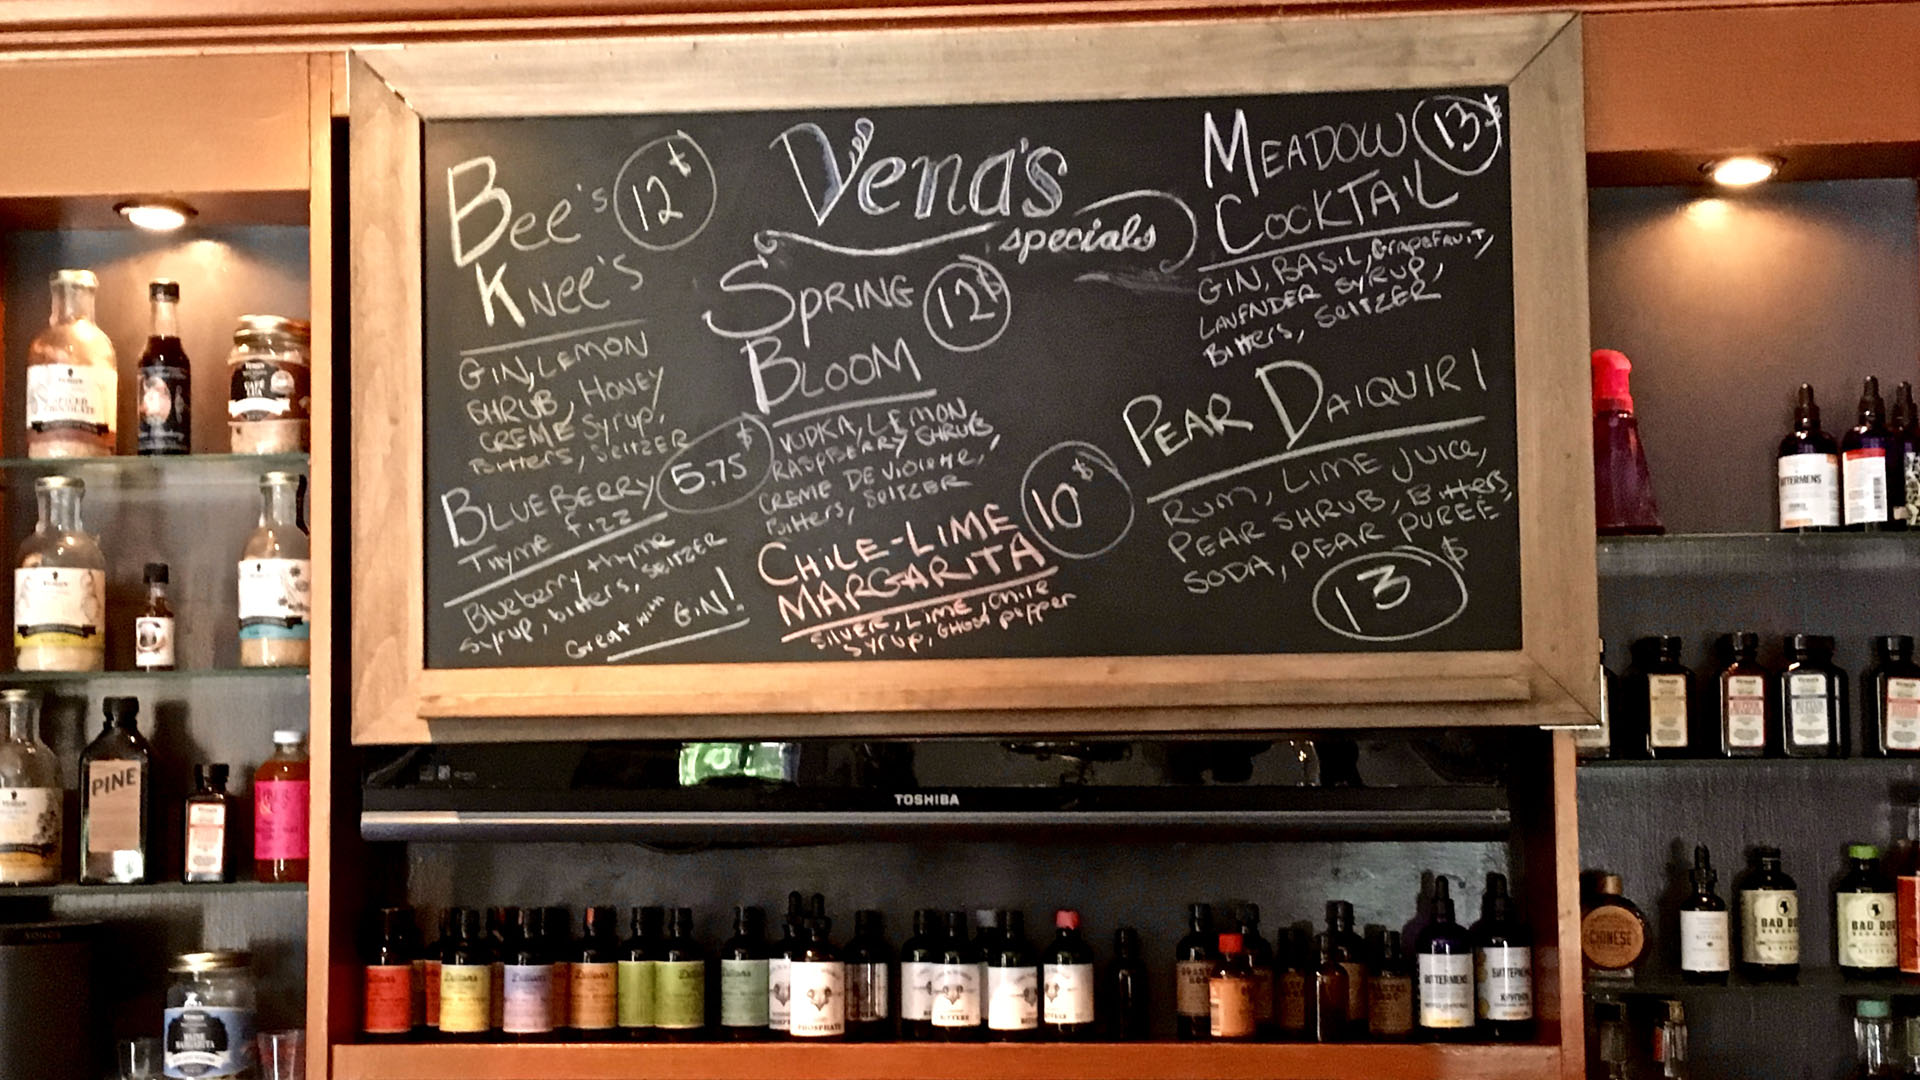 Vena's
specials
Bee's 12$
Knee's
GIN, LEMON
SHRUB, HONEY
CREME Syrup,
Bitters, SELTZER
BLUEBERRY 5.75$
Thyme Fizz
Blueberry thyme
syrup, bitters, SEltZER
Great with GiN!
SPRING 12$
BLOOM
VODKA, LEMON,
RASPBERRY SHRUB,
CREME DE Violette,
Bitters, SEltZER
CHiLE-LIME 10$
MARGARITA
SILVER, LIME, Chile
syrup, GHOST pepper
MEADOW 13$
COCKTAIL
GIN, BASIL, GRAPEFRUIT,
LAVENDER SYRUP,
Bitters, SEltZER
PEAR DAIQUIRI
RUM, LIME JUICE,
PEAR SHRUB, Bitters,
SODA, PEAR PUREE,
13$
TOSHIBA
PINE
MAINE
MARGARITA
PHOSPHATE
BITTERS
BITTERMENS
BITTERMENS
BAD DO
BAD DO